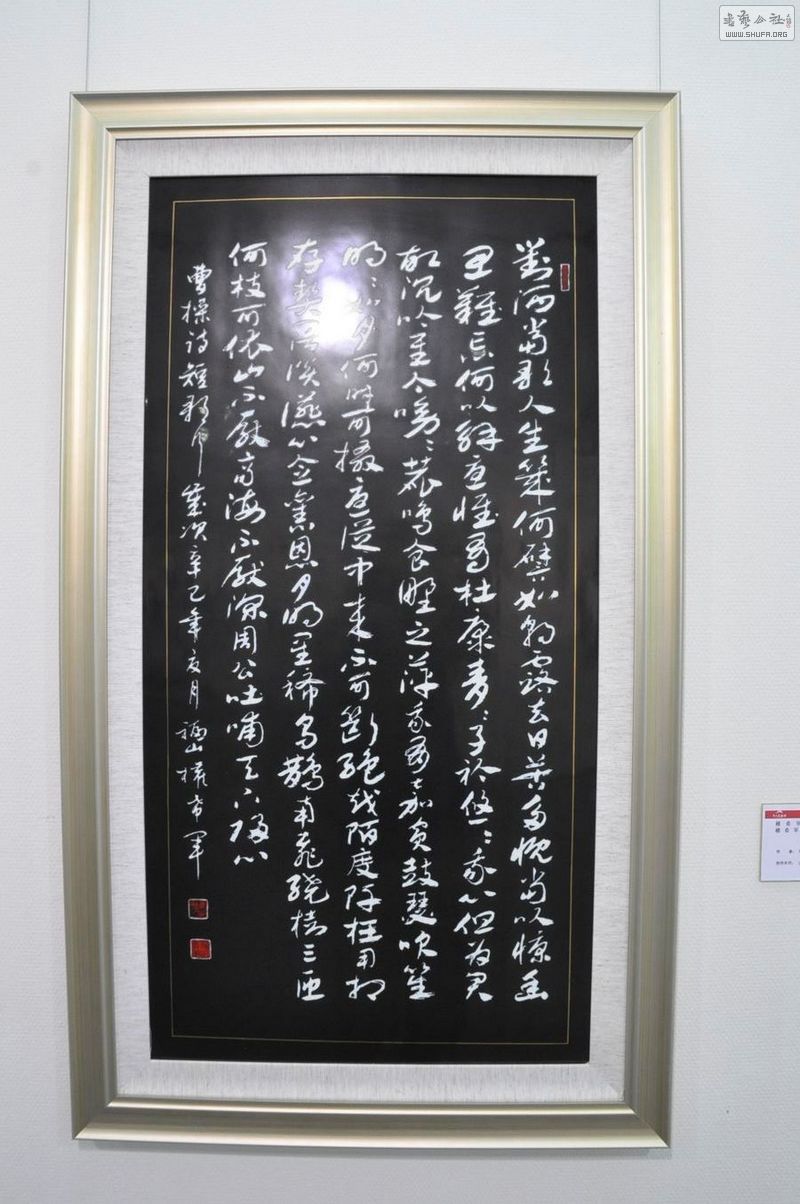 對酒當歌人生幾何譬如朝露去日苦多慨當以慷幽
思難忘何以解憂惟有杜康青々子衿悠々我心但為君
故沉吟至今呦々鹿鳴食野之苹我有嘉賓鼓瑟吹笙
明々如月何時可掇憂從中來不可斷絕越陌度阡枉用相
存契闊談讌心念舊恩月明星稀烏鵲南飛繞樹三匝
何枝可依山不厭高海不厭深周公吐哺天下歸心
曹操詩短歌行 歲次辛乙年夏月 福山權希軍
書藝公社
WWW.SHUFA.ORG